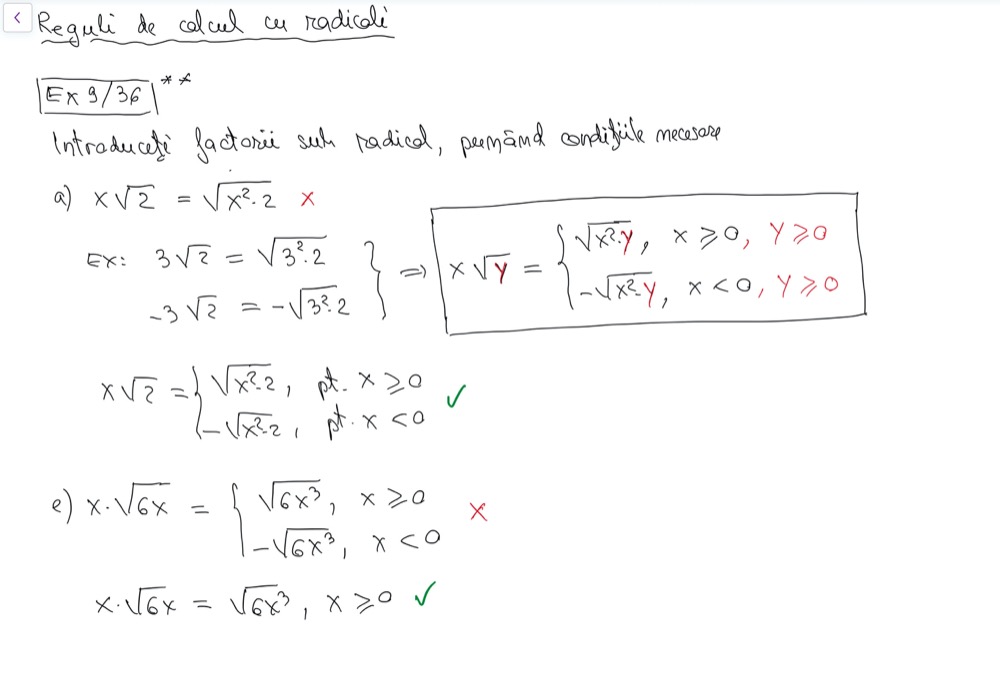 Reguli de calcul cu radicali
Ex 9/36 **
Introduceți factorii sub radical, punând condițiile necesare
a) x√2 = √(x²·2) x
Ex: 3√2 = √(3²·2)
-3√2 = -√(3²·2)
} ⇒ x√y = { √(x²·y), x ⩾ 0, y ⩾ 0
-√(x²·y), x < 0, y ⩾ 0
x√2 = { √(x²·2), pt. x ⩾ 0 ✓
-√(x²·2), pt. x < 0
e) x·√(6x) = { √(6x³), x ⩾ 0 x
-√(6x³), x < 0
x·√(6x) = √(6x³), x ⩾ 0 ✓